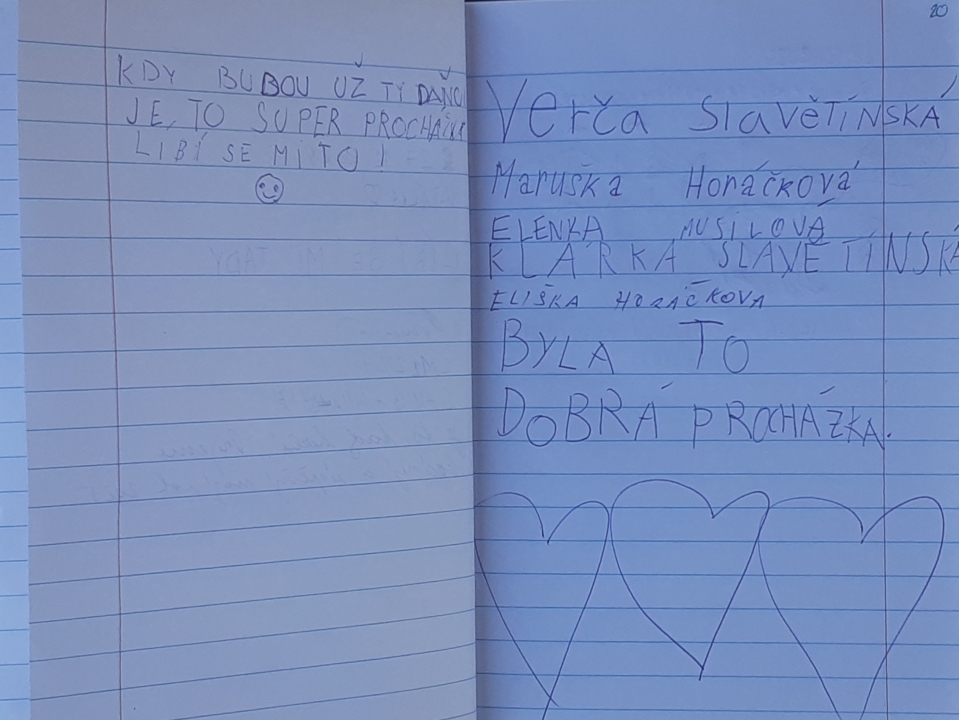 KDY BUBOU UŽ TY DAŇCI
JE, TO SUPER
LIBÍ SE MI TO!
20
Verča SlavěTÍNSKÁ
Maruška Horáčková
ELENKA MUSILOVÁ
KLÁRKA SLAVĚTÍNSKÁ
ELIŠKA HORÁČKOVA
BYLA TO
DOBRÁ PROCHÁZKA.